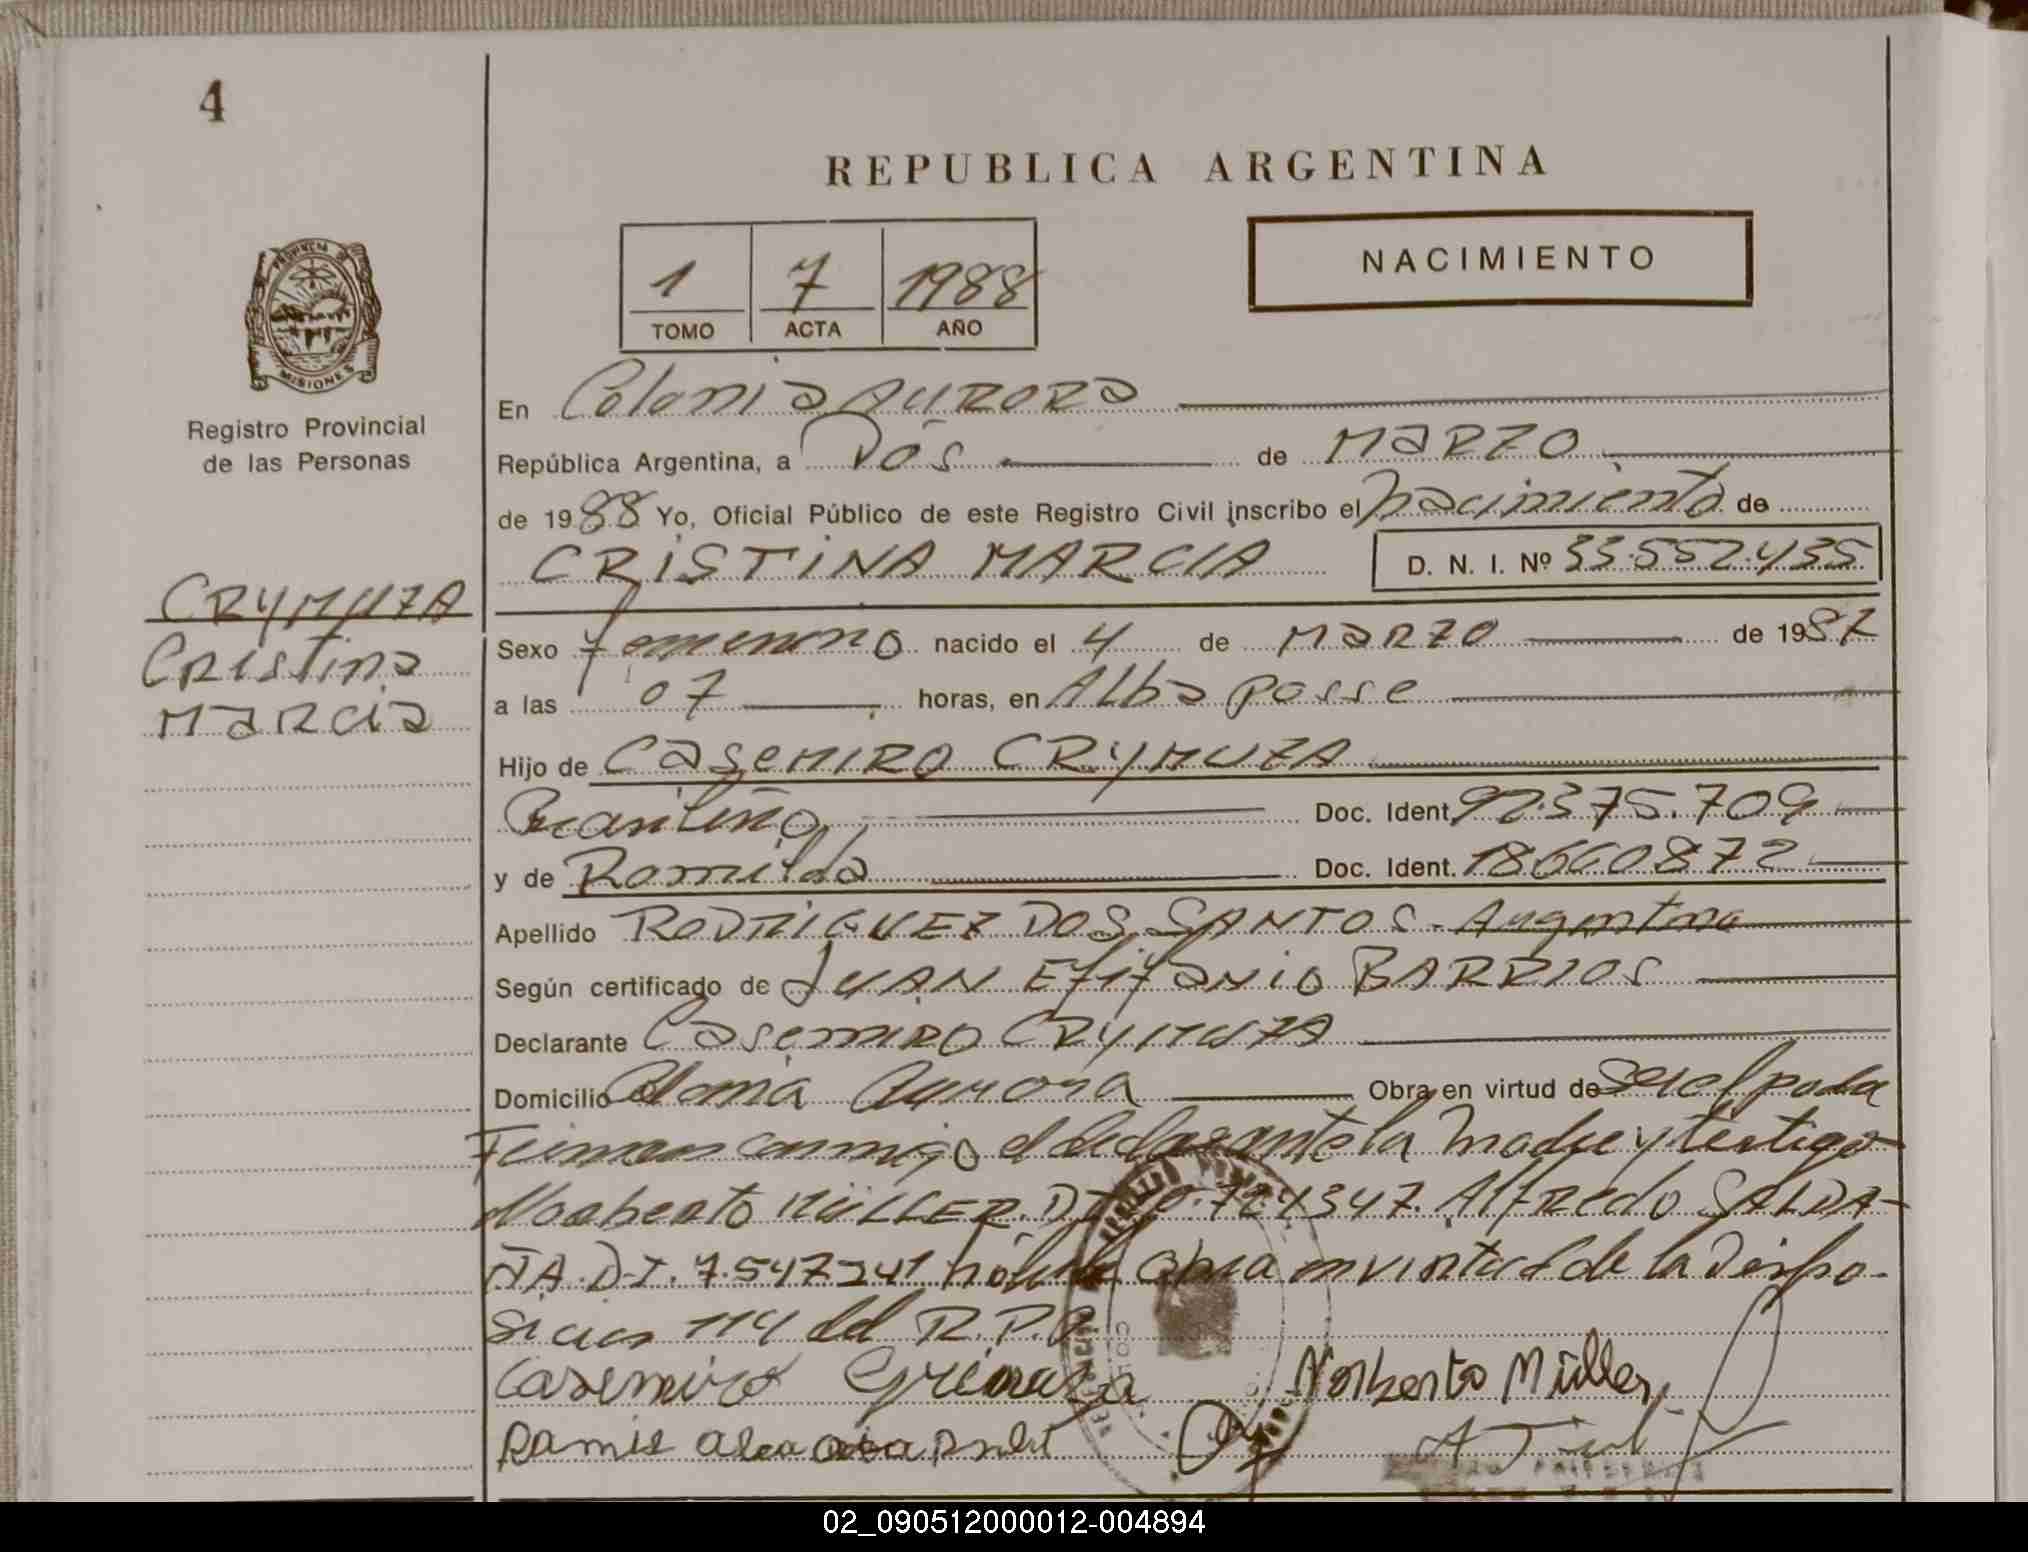 4
REPUBLICA ARGENTINA
NACIMIENTO
1 7 1988
TOMO ACTA AÑO
PROVINCIA DE
MISIONES
Registro Provincial
de las Personas
CRYMUZA
Cristina
Marcia
En Colonia Aurora
República Argentina, a Dós de Marzo
de 1988 Yo, Oficial Público de este Registro Civil inscribo el Nacimiento de
CRISTINA MARCIA D. N. I. Nº 33.552.435
Sexo femenino nacido el 4 de Marzo de 1987
a las 07 horas, en Alba posse
Hijo de Casemiro CRYMUZA
Brasileño Doc. Ident. 92.375.709
y de Romilda Doc. Ident. 18660872
Apellido RODRIGUEZ DOS SANTOS - Argentina
Según certificado de Juan Efifanio BARRIOS
Declarante Casemiro CRYMUZA
Domicilio Colonia Aurora Obra en virtud de
Firman conmigo el declarante la Madre y testigo
Norberto MÜLLER. D.I. Alfredo SALDA-
ÑA. D.I. 7.547241 obra en virtud de la Dispo-
sicion 114 del R.P.P
Casemiro Norberto Müller
02_090512000012-004894